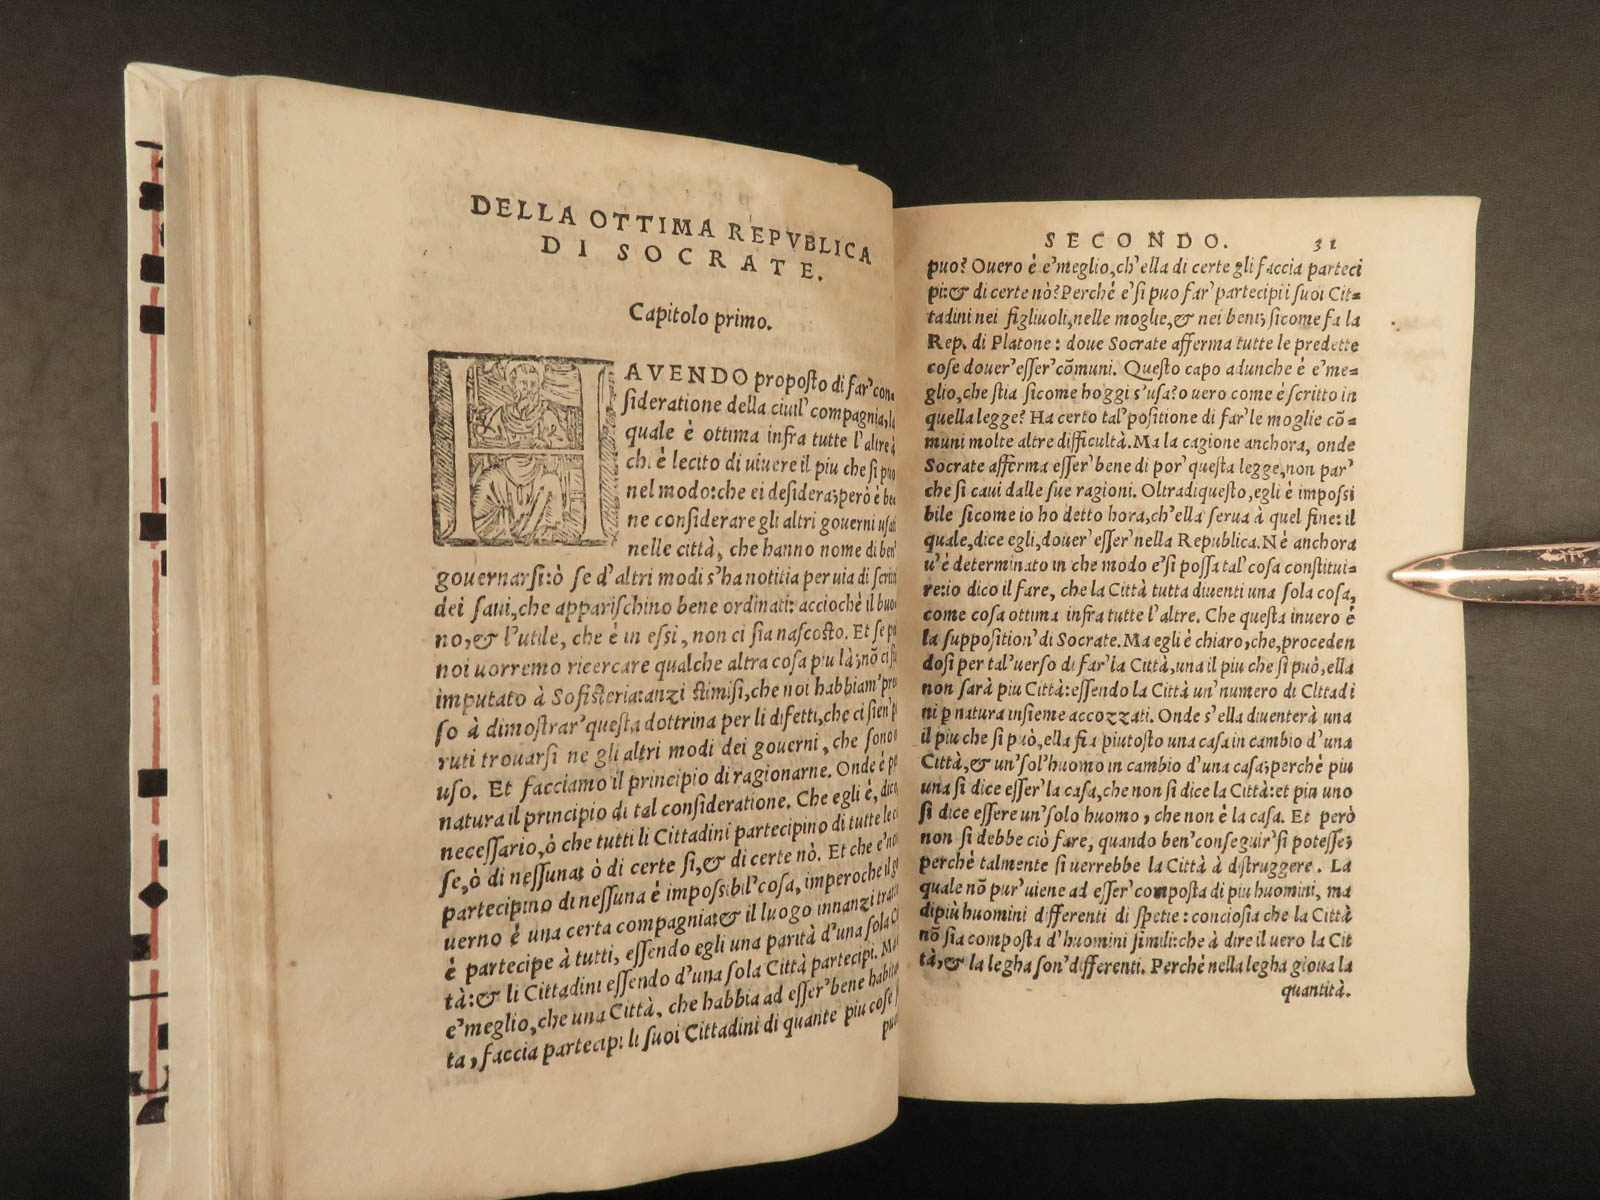 DELLA OTTIMA REPVBLICA
DI SOCRATE.
Capitolo primo.
HAVENDO proposto di far' con-
sideratione della ciuil' compagnia, la
quale è ottima infra tutte l'altre à
chi è lecito di uiuere il piu che si puo
nel modo: che ei desidera; però è be
ne considerare gli altri gouerni usati
nelle città, che hanno nome di ben'
gouernarsi: ò se d'altri modi s'ha notitia per uia di scritti
dei saui, che apparischino bene ordinati: acciochè il buo
no, & l'utile, che è in essi, non ci sia nascosto. Et se
noi uorremo ricercare qualche altra cosa piu là; nō ci
imputato à Sofisteria: anzi stimisi, che noi habbiam' pre
so à dimostrar' questa dottrina per li difetti, che ci sien'
ruti trouarsi ne gli altri modi dei gouerni, che sono
uso. Et facciamo il principio di ragionarne. Onde è
natura il principio di tal consideratione. Che egli è, dico,
necessario, ò che tutti li Cittadini partecipino di tutte le
se, ò di nessuna; ò di certe si, & di certe nò. Et che e' no
partecipino di nessuna è impossibil' cosa, imperoche il
uerno è una certa compagnia: & il luogo innanzi
è partecipe à tutti, essendo egli una parità d'una sola
tà: & li Cittadini essendo d'una sola Città partecipi. Ma
e' meglio, che una Città, che habbia ad esser' bene
ta, faccia partecipi li suoi Cittadini di quante piu cose
SECONDO. 31
puo? Ouero è e' meglio, ch'ella di certe gli faccia parteci
pi: & di certe nò? Perchè e' si puo far' partecipi i suoi Cit=
tadini nei figliuoli, nelle moglie, & nei beni; sicome fa la
Rep. di Platone: doue Socrate afferma tutte le predette
cose douer' esser' cōmuni. Questo capo adunche è e' me=
glio, che stia sicome hoggi s'usa? o uero come è scritto in
quella legge? Ha certo tal' positione di far' le moglie cō=
muni molte altre difficultà. Ma la cagione anchora, onde
Socrate afferma esser' bene di por' questa legge, non par'
che si caui dalle sue ragioni. Oltradiquesto, egli è impossi
bile sicome io ho detto hora, ch'ella serua à quel fine: il
quale, dice egli, douer' esser' nella Republica. Nè anchora
u'è determinato in che modo e' si possa tal' cosa constitui=
re: io dico il fare, che la Città tutta diuenti una sola cosa,
come cosa ottima infra tutte l'altre. Che questa inuero è
la supposition' di Socrate. Ma egli è chiaro, che, proceden
dosi per tal' uerso di far' la Città, una il piu che si può, ella
non sarà piu Città: essendo la Città un' numero di Cittadi
ni p natura insieme accozzati. Onde s'ella diuenterà una
il piu che si può, ella fia piutosto una casa in cambio d'una
Città, & un' sol' huomo in cambio d'una casa; perchè piu
una si dice esser' la casa, che non si dice la Città: et piu uno
si dice essere un' solo huomo, che non è la casa. Et però
non si debbe ciò fare, quando ben' conseguir' si potesse;
perchè talmente si uerrebbe la Città à distruggere. La
quale nō pur' uiene ad esser' composta di piu huomini, ma
dipiù huomini differenti di spetie: conciosia che la Città
nō sia composta d'huomini simili: che à dire il uero la Cit
tà, & la legha son' differenti. Perchè nella legha gioua la
quantità.